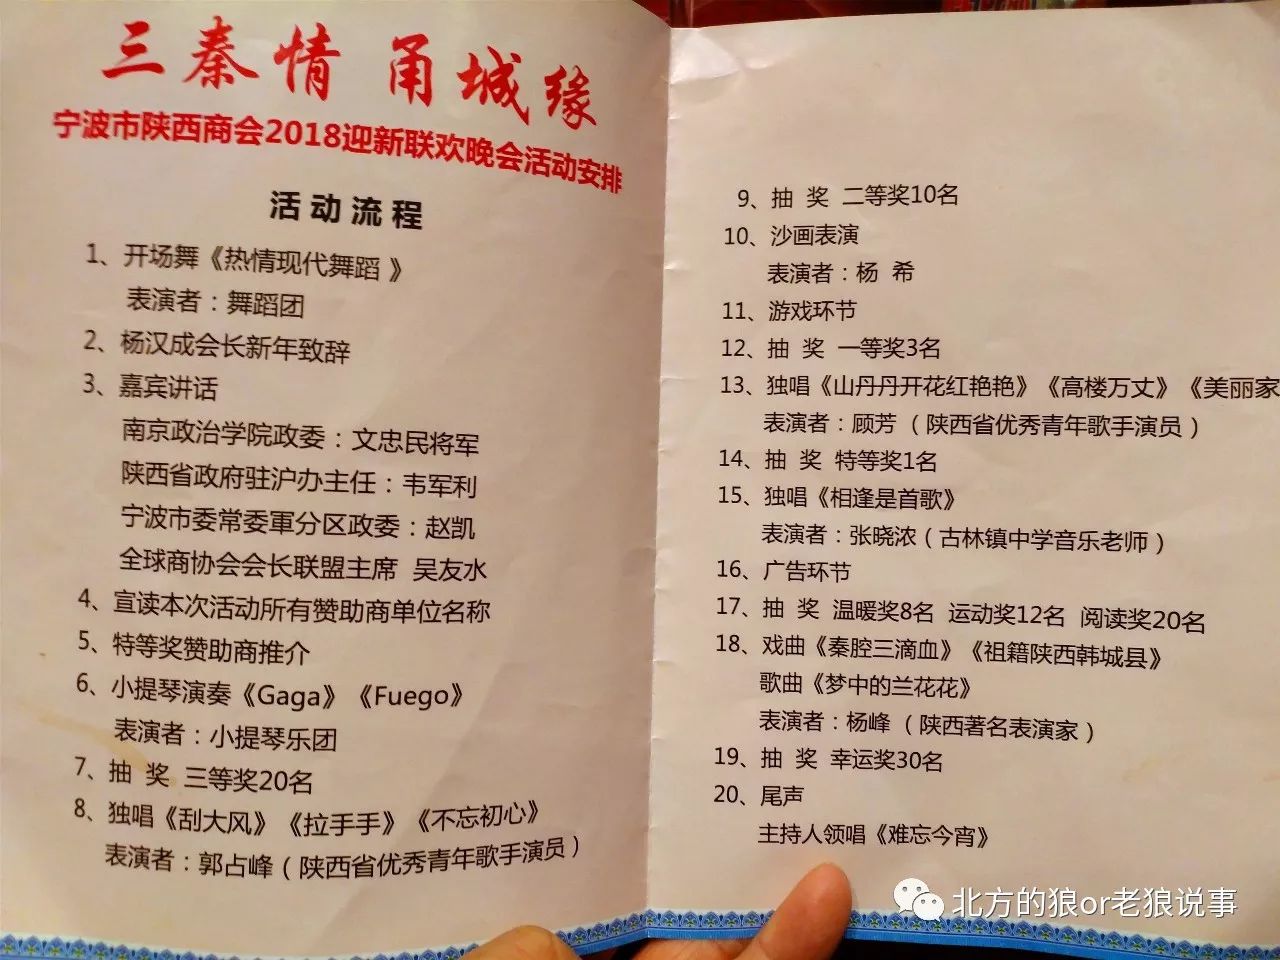 三秦情 甬城缘
宁波市陕西商会2018迎新联欢晚会活动安排
活动流程
1、开场舞《热情现代舞蹈 》
表演者：舞蹈团
2、杨汉成会长新年致辞
3、嘉宾讲话
南京政治学院政委：文忠民将军
陕西省政府驻沪办主任：韦军利
宁波市委常委軍分区政委：赵凯
全球商协会会长联盟主席 吴友水
4、宣读本次活动所有赞助商单位名称
5、特等奖赞助商推介
6、小提琴演奏《Gaga》《Fuego》
表演者：小提琴乐团
7、抽 奖 三等奖20名
8、独唱《刮大风》《拉手手》《不忘初心》
表演者：郭占峰（陕西省优秀青年歌手演员）
9、抽 奖 二等奖10名
10、沙画表演
表演者：杨 希
11、游戏环节
12、抽 奖 一等奖3名
13、独唱《山丹丹开花红艳艳》《高楼万丈》《美丽家
表演者：顾芳（陕西省优秀青年歌手演员）
14、抽 奖 特等奖1名
15、独唱《相逢是首歌》
表演者：张晓浓（古林镇中学音乐老师）
16、广告环节
17、抽 奖 温暖奖8名 运动奖12名 阅读奖20名
18、戏曲《秦腔三滴血》《祖籍陕西韩城县》
歌曲《梦中的兰花花》
表演者：杨峰（陕西著名表演家）
19、抽 奖 幸运奖30名
20、尾声
主持人领唱《难忘今宵》
北方的狼or老狼说事